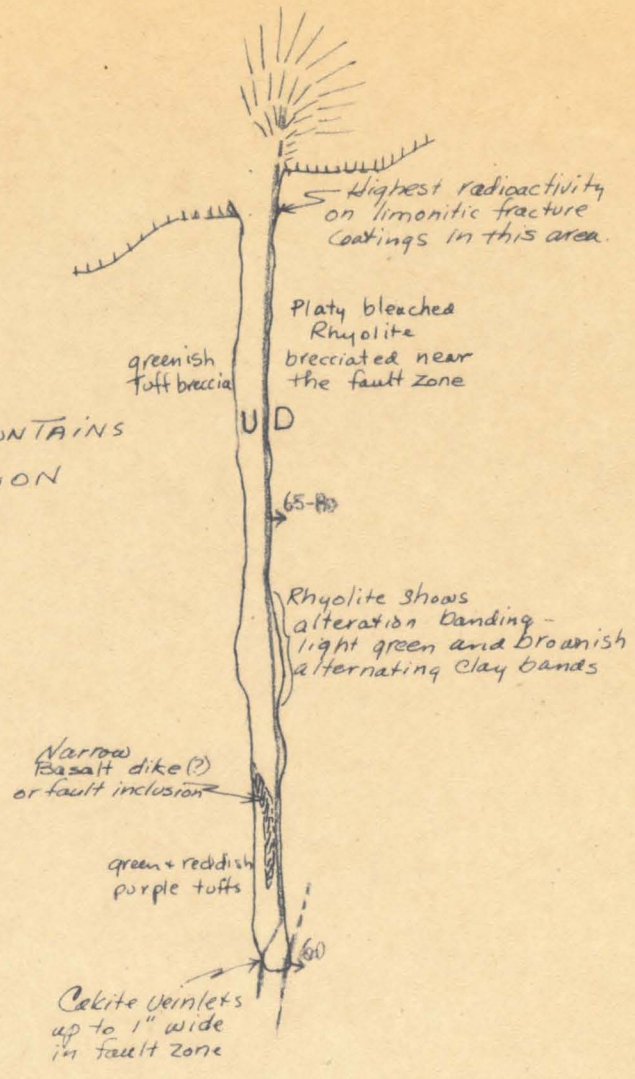 Highest radioactivity
on limonitic fracture
coatings in this area.
Platy bleached
Rhyolite
brecciated near
the fault zone
greenish
Tuff breccia
U D
UNTAINS
ION
65-80
Rhyolite shows
alteration banding -
light green and brownish
alternating clay bands
Narrow
Basalt dike (?)
or fault inclusion
green + reddish
purple tuffs
60
Calcite veinlets
up to 1" wide
in fault zone